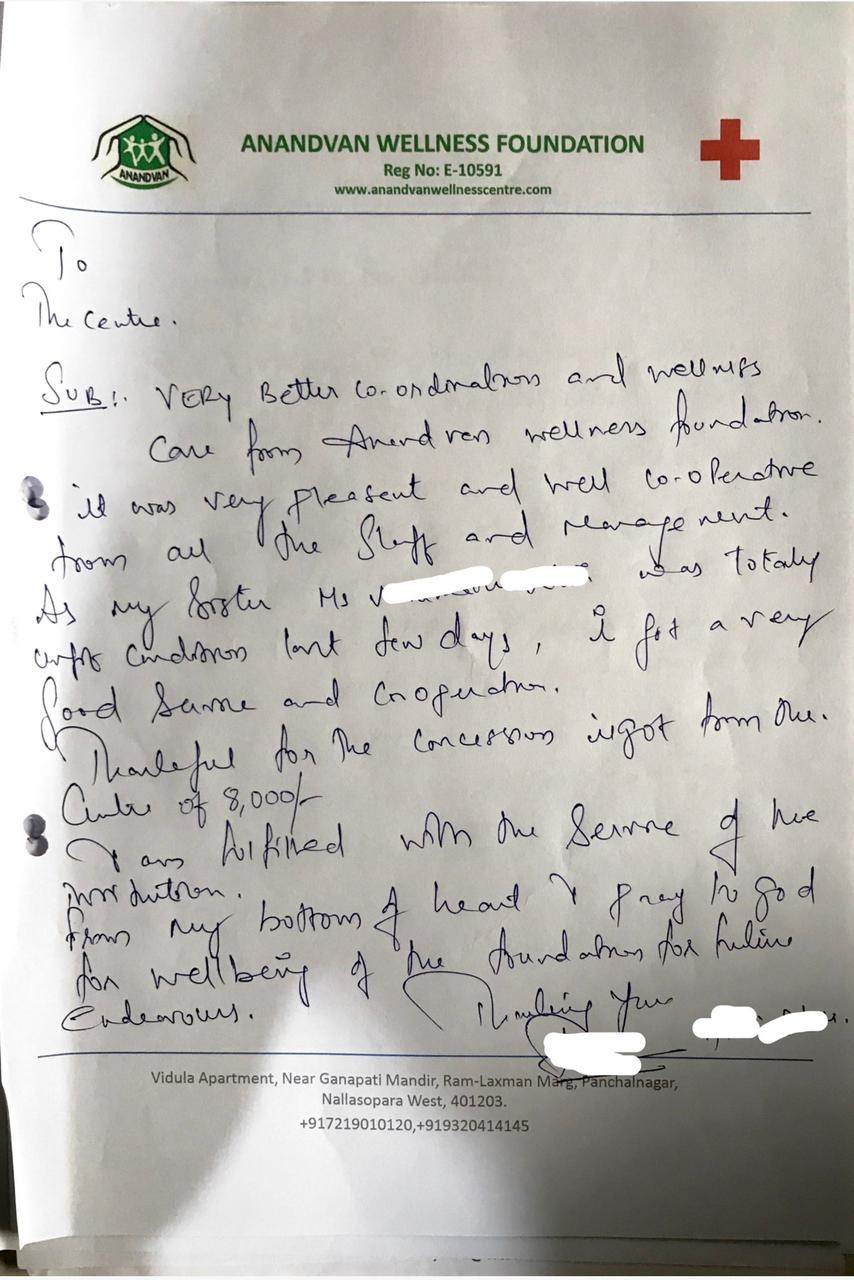 ANANDVAN
ANANDVAN WELLNESS FOUNDATION
Reg No: E-10591
www.anandvanwellnesscentre.com
To
The Centre.
SUB:. VERY Better Co-ordination and wellness
Care from Anandvan wellness foundation.
it was very pleasent and well co-operative
from all the Staff and management.
As my Sister Ms was totaly
unfit condition last few days, i got a very
good Service and Co-operation.
Thankful for the concession i got from the.
Centre of 8,000/-
I am fulfilled with the Service of the
institution.
From my bottom of heart I pray to god
for wellbeing of the foundation for future
Endeavours.
Thanking You
Vidula Apartment, Near Ganapati Mandir, Ram-Laxman Marg, Panchalnagar,
Nallasopara West, 401203.
+917219010120,+919320414145